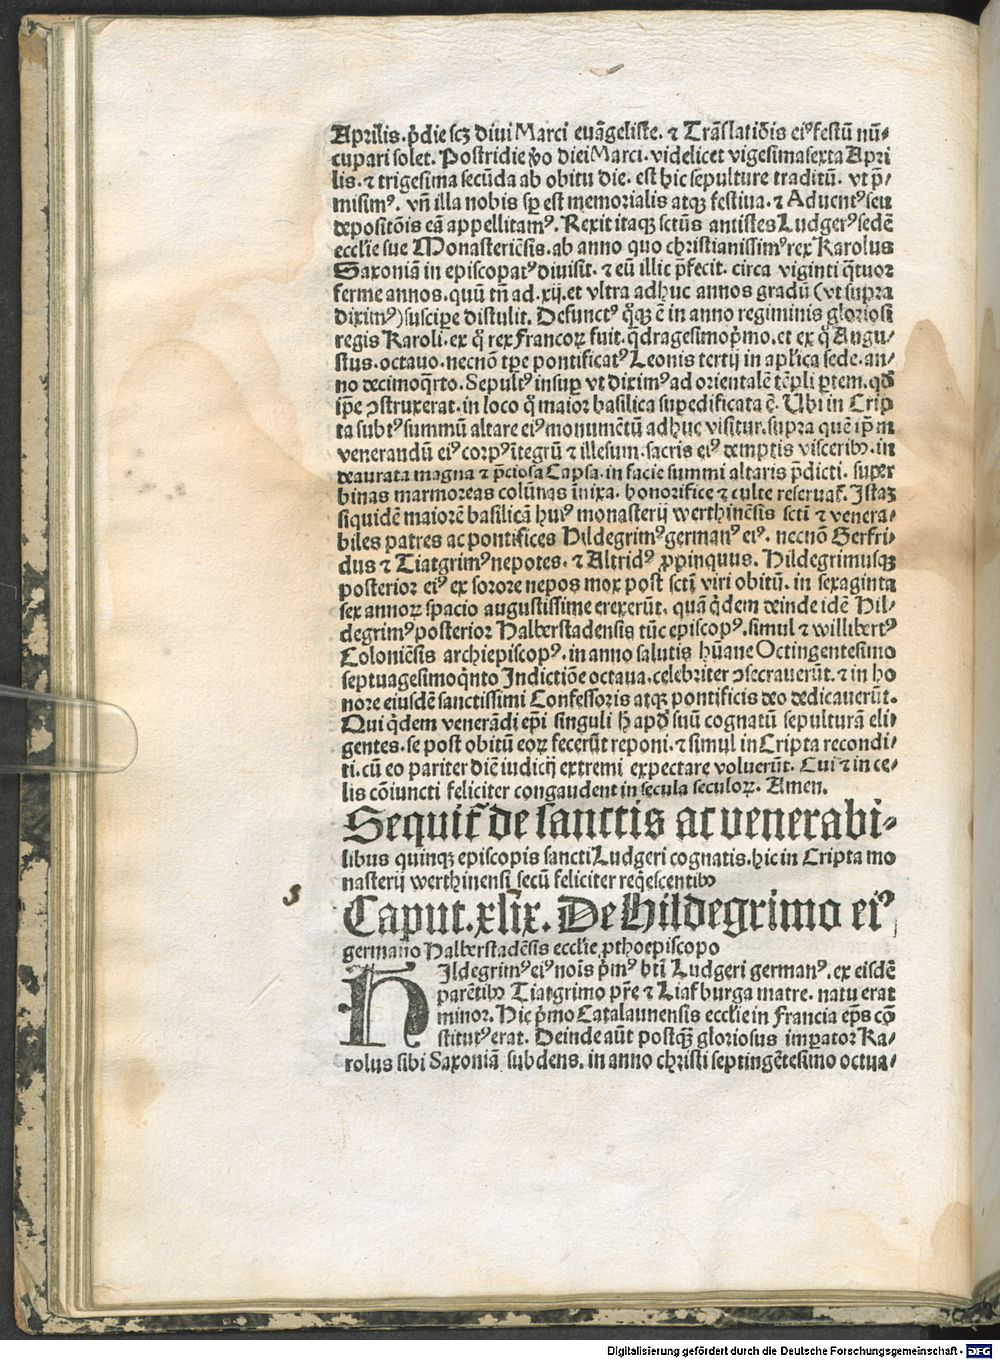 Aprilis. p̄die scꝫ diui Marci euāgeliste. ⁊ Trāslatiōis eiꝰ festū nū-
cupari solet. Postridie ṽo diei Marci. videlicet vigesimasexta Apri
lis. ⁊ trigesima secūda ab obitu die. est hic sepulture traditū. vt p̄-
misimꝰ. vn̄ illa nobis sp̄ est memorialis atqꝫ festiua. ⁊ Aduentꝰ seu
depositōis eā appellitamꝰ. Rexit itaqꝫ sctūs antistes Ludgerꝰ sedē
eccl̄ie sue Monasteriēsis. ab anno quo christianissimꝰ rex Karolus
Saxoniā in episcopatꝰ diuisit. ⁊ eū illic p̄fecit. circa viginti q̄tuor
ferme annos. quū tn̄ ad .xij. et vltra adhuc annos gradū (vt supra
diximꝰ) suscipe distulit. Defunctꝰ q̄qꝫ ē in anno regiminis gloriosi
regis Karoli. ex q̄ rex Francoꝝ fuit. q̄dragesimop̄mo. et ex q̄ Augu-
stus. octauo. necnō tp̄e pontificatꝰ Leonis tertij in apl̄ica sede. an-
no decimoq̄rto. Sepultꝰ insuꝑ vt diximꝰ ad orientalē tēpli ꝑtem. qd̄
ip̄e ꝯstruxerat. in loco q̄ maior basilica suꝑedificata ē. Ubi in Crip
ta subtꝰ summū altare eiꝰ monumētū adhuc visitur. supra quē ip̄m
venerandū eiꝰ corpꝰ ītegrū ⁊ illesum. sacris eiꝰ demptis visceribꝰ. in
deaurata magna ⁊ p̄ciosa Capsa. in facie summi altaris p̄dicti. super
binas marmoreas colūnas inixa. honorifice ⁊ culte reseruat̄. Istaꝫ
siquidē maiorē basilicā huiꝰ monasterij werthinēsis sctī ⁊ venera-
biles patres ac pontifices Hildegrimꝰ germanꝰ eiꝰ. necnō Gerfri-
dus ⁊ Tiatgrimꝰ nepotes. ⁊ Altridꝰ ꝓpinquus. Hildegrimusqꝫ
posterior eiꝰ ex sorore nepos mox post sctī viri obitū. in sexaginta
sex annoꝝ spacio augustissime erexerūt. quā q̄dem deinde idē Hil-
degrimꝰ posterior Halberstadensis tūc episcopꝰ. simul ⁊ willibertꝰ
Coloniēsis archiepiscopꝰ. in anno salutis hūane Octingentesimo
septuagesimoq̄nto Indictiōe octaua. celebriter ꝯsecrauerūt. ⁊ in ho
nore eiusdē sanctissimi Confessoris atqꝫ pontificis deo dedicauerūt.
Qui q̄dem venerādi ep̄i singuli h̄ apd̄ suū cognatū sepulturā eli-
gentes. se post obitū eoꝝ fecerūt reponi. ⁊ simul in Cripta recondi-
ti. cū eo pariter diē iudicij extremi expectare voluerūt. Cui ⁊ in ce-
lis cōiuncti feliciter congaudent in secula seculoꝝ. Amen.
Sequit̄ de sanctis ac venerabi-
libus quinqꝫ episcopis sancti Ludgeri cognatis. hic in Cripta mo
nasterij werthinensi secū feliciter req̄escentibꝰ
Caput .xlix. De Hildegrimo eiꝰ
germano Halberstadēsis eccl̄ie ꝓthoepiscopo
HIldegrimꝰ eiꝰ nōis p̄mꝰ bt̄i Ludgeri germanꝰ. ex eisdē
parētibꝰ Tiatgrimo pr̄e ⁊ Liafburga matre. natu erat
minor. Hic p̄mo Catalaunensis eccl̄ie in Francia ep̄s cō
stitutꝰ erat. Deinde aūt postqꝫ̄ gloriosus imꝑator Ka-
rolus sibi Saxoniā subdens. in anno christi septingētesimo octua-
Digitalisierung gefördert durch die Deutsche Forschungsgemeinschaft - DFG